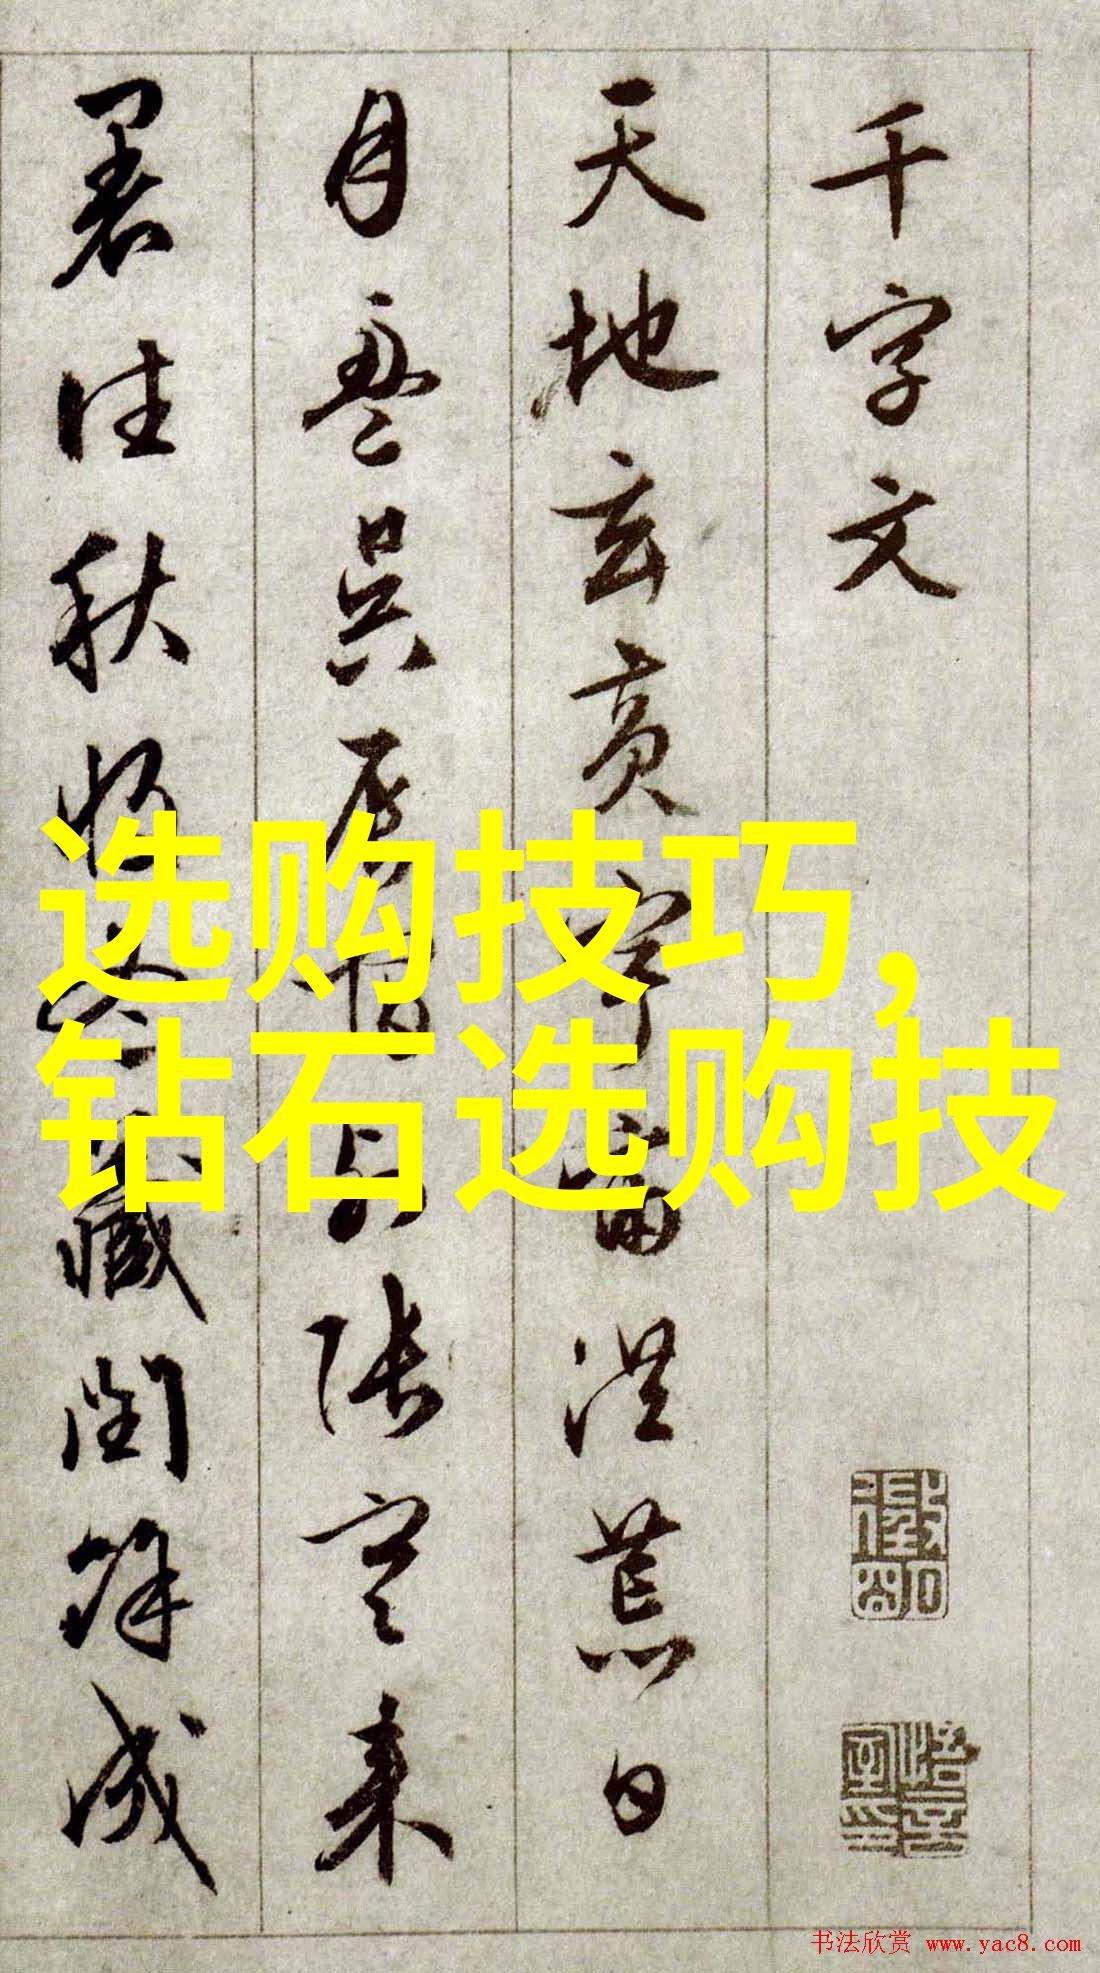 千字文
天地玄黄宇宙洪荒日
月盈昃辰宿列张寒来
暑往秋收冬藏闰余成
选购技巧,
钻石选购技
书法欣赏 www.yac8.com